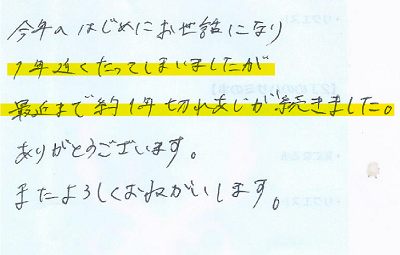 今年のはじめにお世話になり
1年近くたってしまいましたが
最近まで約1年切れあじが続きました。
ありがとうございます。
またよろしくおねがいします。